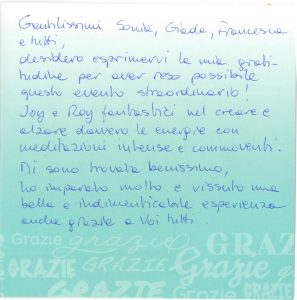 Gentilissimi Sonia, Giada, Francesca
e tutti,
desidero esprimervi la mia grati-
tudine per aver reso possibile
questo evento straordinario!
Joy e Roy fantastici nel creare e
alzare davvero le energie con
meditazioni intense e commoventi.
Mi sono trovata benissimo,
ho imparato molto e vissuto una
bella e indimenticabile esperienza
anche grazie a Voi tutti.
Grazie grazie GRAZIE
GRAZIE GRAZIE Grazie